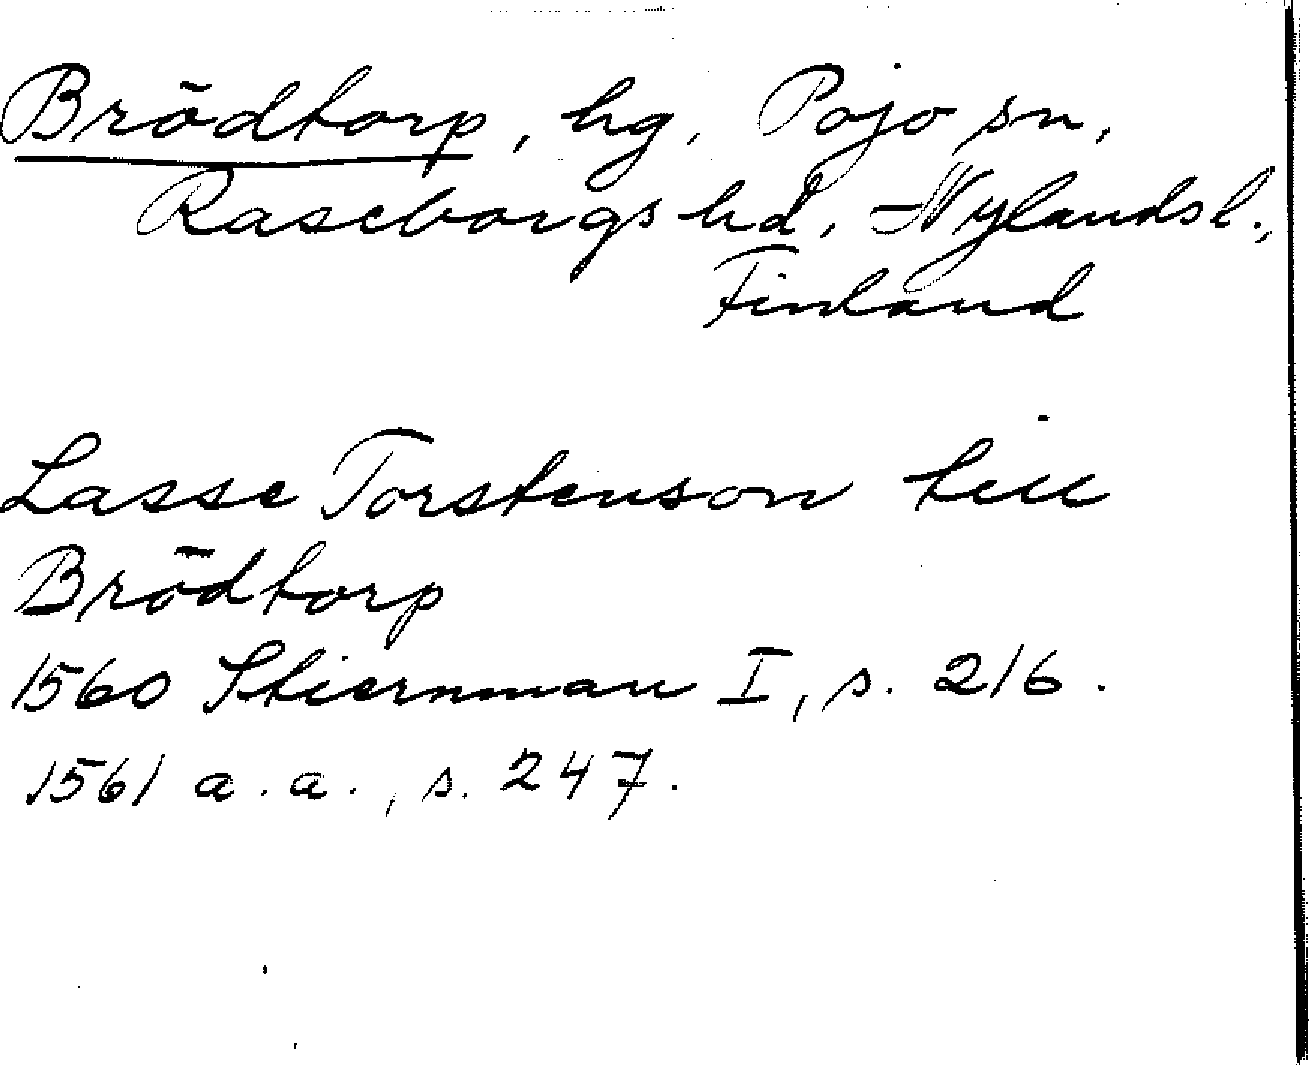 Brödtorp, hg, Pojo sn,
Raseborgs hd, Nylands l.,
Finland
Lasse Torstenson till
Brödtorp
1560 Stiernman I, s. 216.
1561 a. a., s. 247.